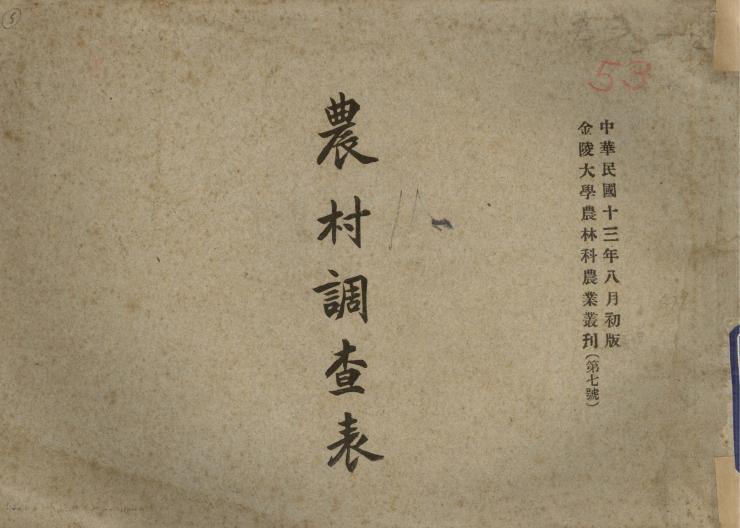 中華民國十三年八月初版
金陵大學農林科農業叢刊(第七號)
農村調查表
53
5